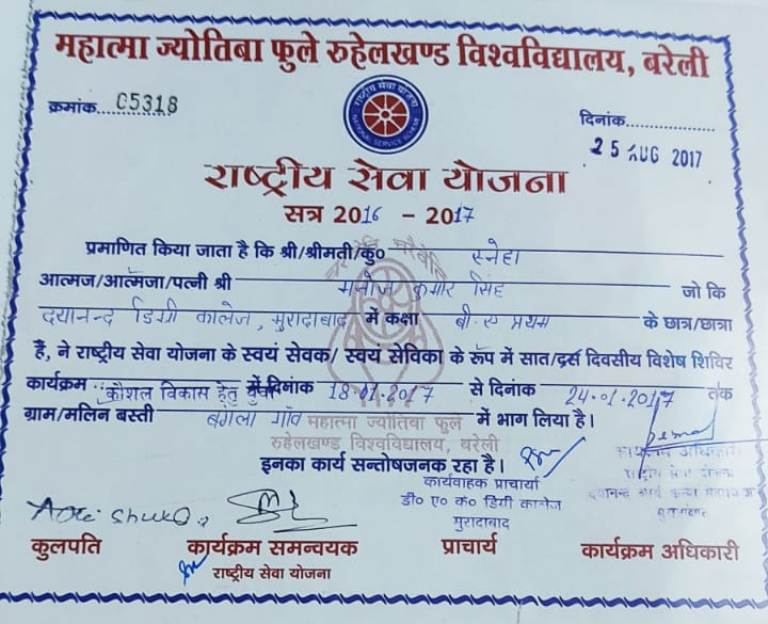 महात्मा ज्योतिबा फुले रुहेलखण्ड विश्वविद्यालय, बरेली
क्रमांक....C5318
राष्ट्रीय सेवा योजना
NATIONAL SERVICE SCHEME
दिनांक....................
25 AUG 2017
राष्ट्रीय सेवा योजना
सत्र 2016 - 2017
प्रमाणित किया जाता है कि श्री/श्रीमती/कु० स्नेहा
आत्मज/आत्मजा/पत्नी श्री मनोज कुमार सिंह जो कि
दयानन्द डिग्री कालेज, मुरादाबाद में कक्षा बी.ए प्रथम के छात्र/छात्रा
हैं, ने राष्ट्रीय सेवा योजना के स्वयं सेवक/ स्वयं सेविका के रूप में सात/दस दिवसीय विशेष शिविर
कार्यक्रम कौशल विकास हेतु युवा में दिनांक 18.01.2017 से दिनांक 24.01.2017 तक
ग्राम/मलिन बस्ती बंगला गाँव में भाग लिया है।
महात्मा ज्योतिबा फुले
रुहेलखण्ड विश्वविद्यालय, बरेली
इनका कार्य सन्तोषजनक रहा है।
कार्यवाहक प्राचार्या
डी० ए० क० डिग्री कालेज
मुरादाबाद
कार्यक्रम अधिकारी
राष्ट्रीय सेवा योजना
कुलपति कार्यक्रम समन्वयक प्राचार्य कार्यक्रम अधिकारी
राष्ट्रीय सेवा योजना